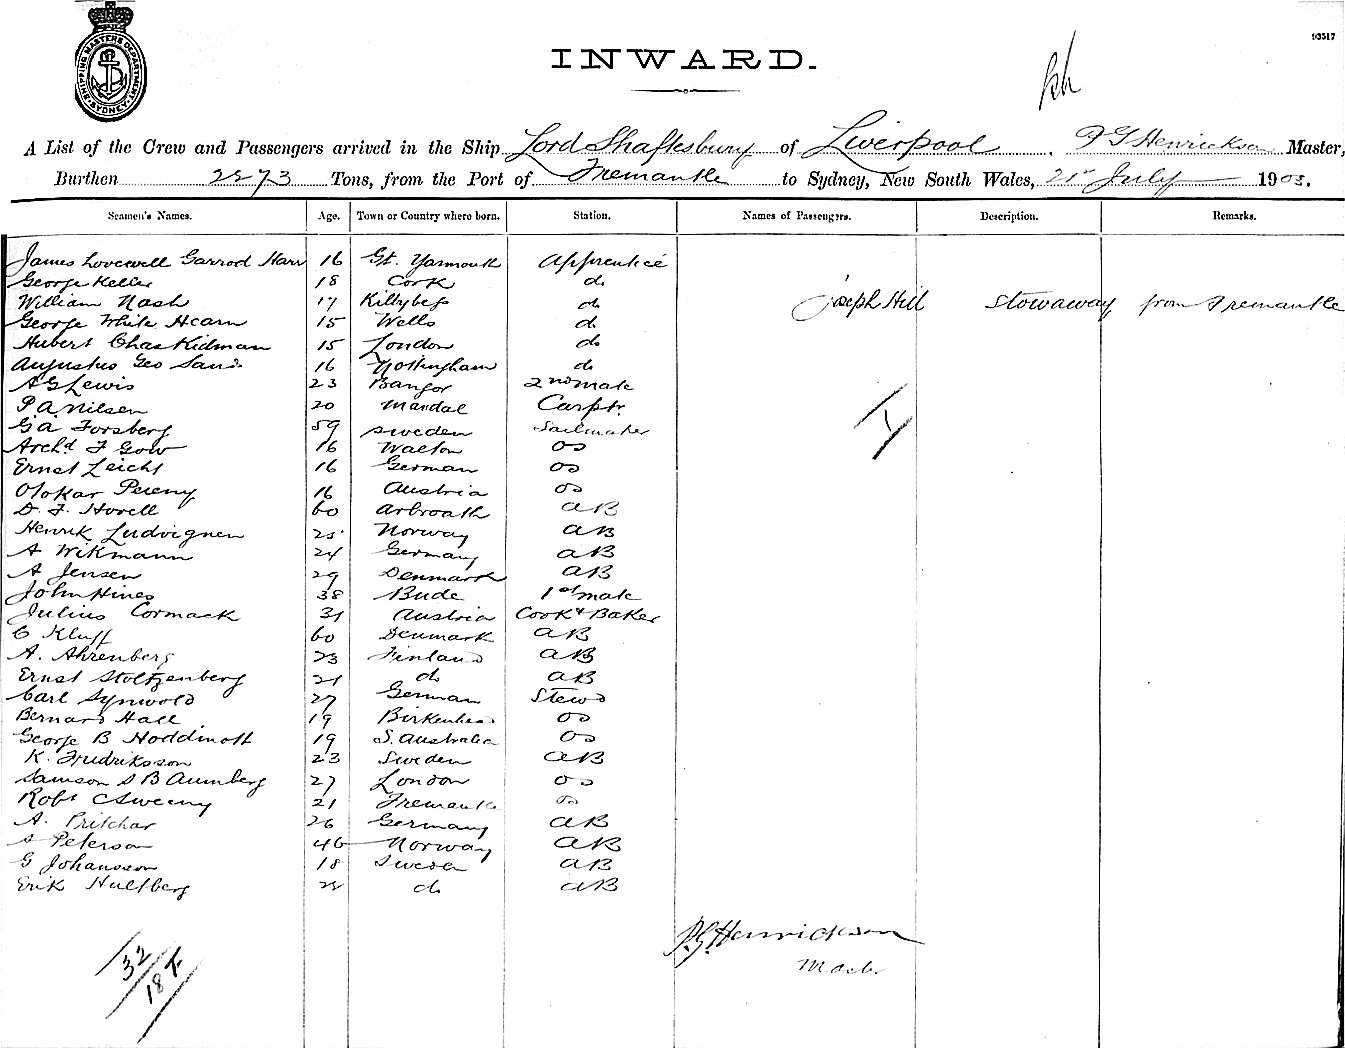 93517
SHIPPING MASTERS DEPARTMENT
SYDNEY
INWARD.
A List of the Crew and Passengers arrived in the Ship Lord Shaftesbury of Liverpool, P G Henrickson Master,
Burthen 2273 Tons, from the Port of Fremantle to Sydney, New South Wales, 21st July 1903.
Seamen's Names. Age. Town or Country where born. Station. Names of Passengers. Description. Remarks.
James Lovewell Garrod Harr 16 Gt. Yarmouth Apprentice
George Keller 18 Cork do
William Nash 17 Killybegs do Joseph Hill Stowaway from Fremantle
George White Hearn 15 Wells do
Hubert Chas Kidman 15 London do
Augustus Geo Sand 16 Nottingham do
A G Lewis 23 Bangor 2nd mate
P. A. Nilsen 20 Mandal Carptr.
G A Forsberg 59 Sweden Sailmaker
Archd F Gow 16 Walton OS
Ernst Leicht 16 German OS
Otokar Pereny 16 Austria OS
D. F. Hovell 60 Arbroath AB
Henrik Ludvignen 25 Norway AB
A Wikmann 24 Germany AB
A Jensen 29 Denmark AB
John Hines 38 Bude 1st mate
Julius Cormack 31 Austria Cook & Baker
C Kluff 60 Denmark AB
A. Ahrenberg 23 Finland AB
Ernst Stoltzenberg 21 do AB
Carl Synwold 27 German Stewd
Bernard Hall 19 Birkenhead OS
George B Hoddinott 19 S. Australia OS
K. Fredriksson 23 Sweden AB
Samson S B Aumberg 27 London OS
Robt C Sweeny 21 Fremantle OS
A. Pritchar 26 Germany AB
S Peterson 46 Norway AB
G Johansson 18 Sweden AB
Erik Hultberg do AB
P. G. Henrickson
Master
32
18